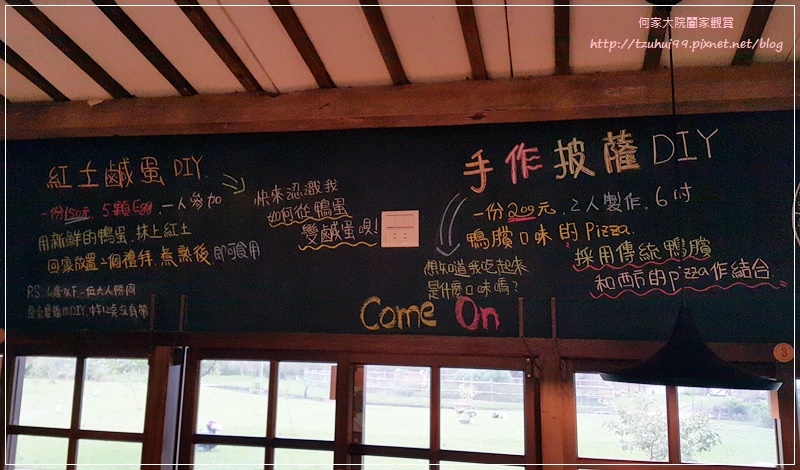 何家大院闔家觀賞
http://tzuhui99.pixnet.net/blog
紅土鹹蛋 DIY
一份150元, 5顆Egg, 一人參加
用新鮮的鴨蛋,抹上紅土
回家放置2個禮拜,煮熟後,即可食用
P.S. 6歲以下,一位大人陪同
快來認識我
如何從鴨蛋
變鹹蛋唄!
手作披薩 DIY
一份200元, 2人製作, 6吋
鴨臏口味的 Pizza.
採用傳統鴨臏
和西方的pizza作結合.
想知道我吃起來
是什麼口味嗎?
Come On
8